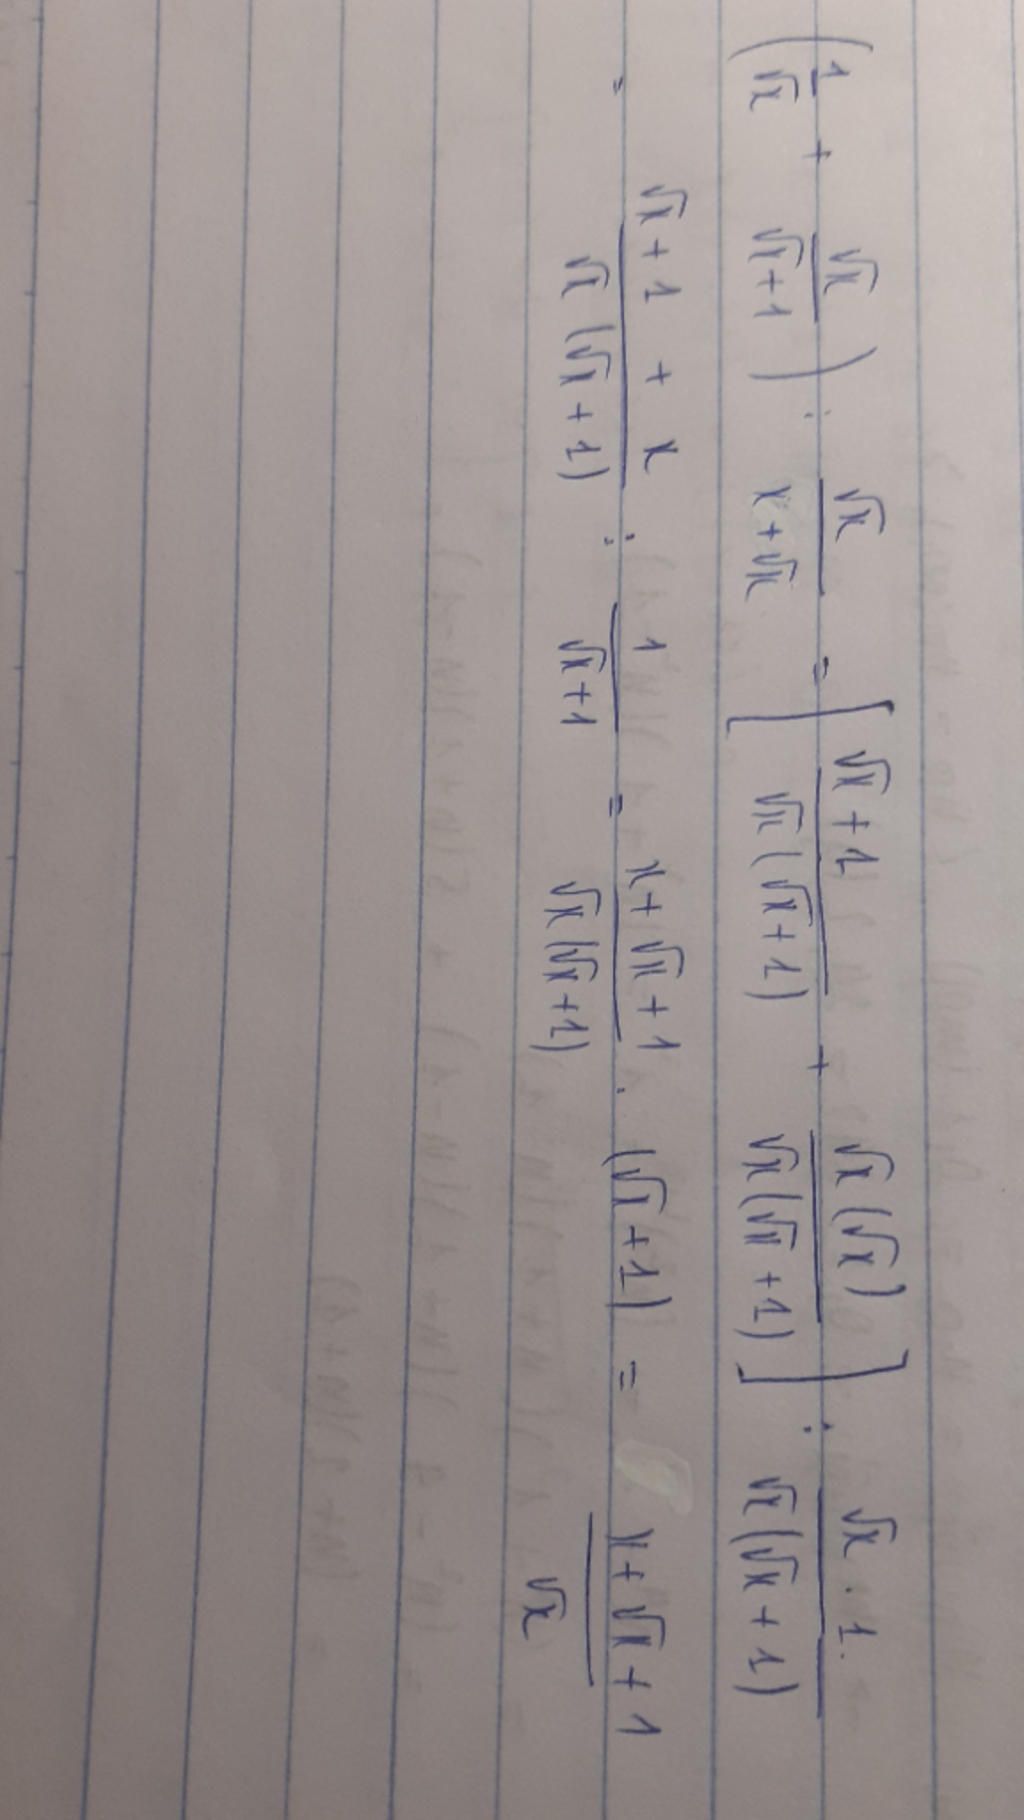 (1/√x + √x/(√x+1)) : √x/(x+√x) = [(√x+1)/(√x(√x+1)) + √x(√x)/(√x(√x+1))] : √x.1/(√x(√x+1))
= (√x+1+x)/(√x(√x+1)) : 1/(√x+1) = (x+√x+1)/(√x(√x+1)) . (√x+1) = (x+√x+1)/√x